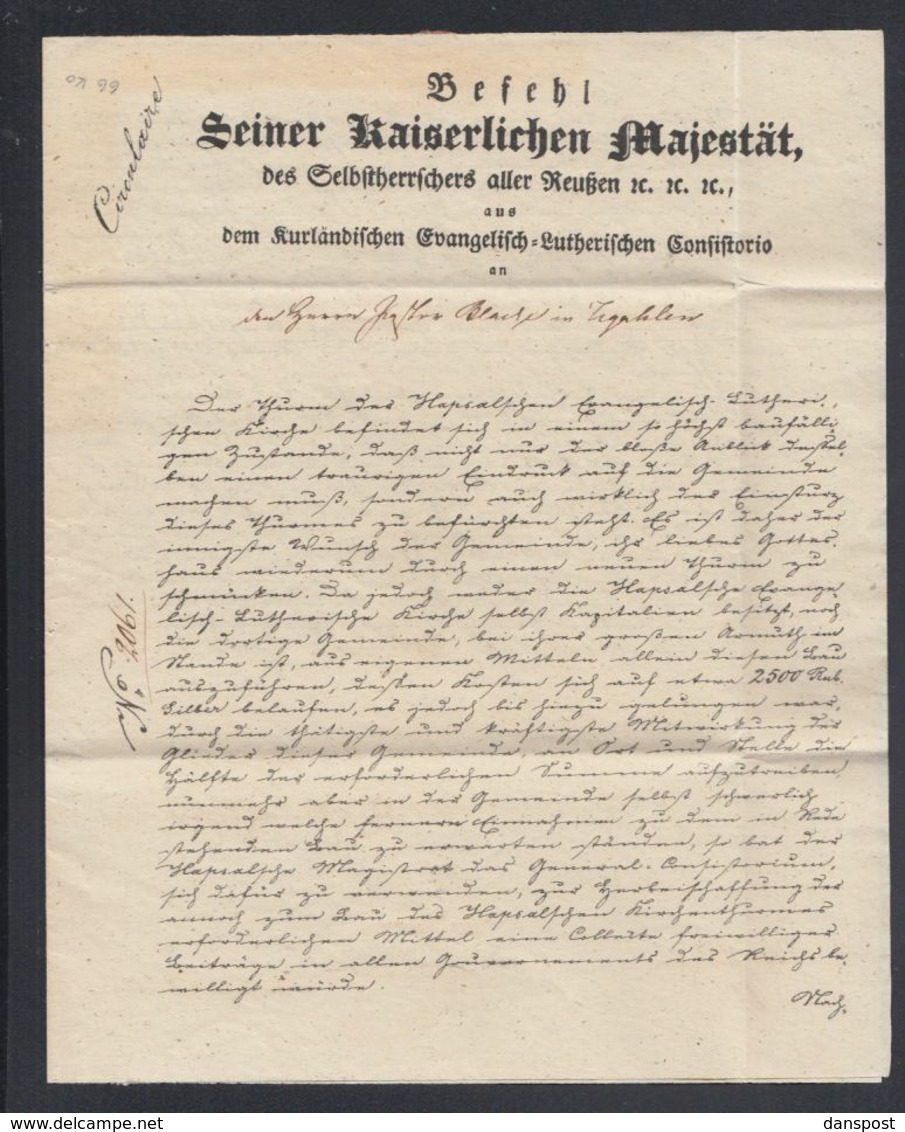 66 KO
Circulaire
Befehl
Seiner Kaiserlichen Majestät,
des Selbstherrschers aller Reußen ꝛc. ꝛc. ꝛc.,
aus
dem Kurländischen Evangelisch-Lutherischen Consistorio
an
den Herrn Pastor in
Der Thurm der Hapsalschen Evangelisch-Lutheri-
schen Kirche befindet sich in einem so höchst baufälli-
gen Zustande, daß nicht nur der bloße Anblick dessel-
ben einen traurigen Eindruck auf die Gemeinde
machen muß, sondern auch wirklich der Einsturz
dieses Thurmes zu befürchten steht. Es ist daher der
innigste Wunsch der Gemeinde, ihr liebes Gottes-
haus wiederum durch einen neuen Thurm zu
schmücken. Da jedoch weder die Hapsalsche Evange-
lisch-Lutherische Kirche selbst Kapitalien besitzt, noch
die dortige Gemeinde, bei ihrer großen Armuth im
Stande ist, aus eigenen Mitteln allein diesen Bau
auszuführen, dessen Kosten sich auf etwa 2500 Rub.
Silber belaufen, es jedoch bis hiezu gelungen war,
durch die thätigste und kräftigste Mitwirkung der
Glieder dieser Gemeinde, an Ort und Stelle die
Hälfte der erforderlichen Summe aufzutreiben,
nunmehr aber in der Gemeinde selbst schwerlich
irgend welche fernere Einnahmen zu dem in Rede
stehenden Bau zu erwarten ständen, so bat der
Hapsalsche Magistrat das General-Consistorium,
sich dafür zu verwenden, zur Herbeischaffung der
annoch zum Bau des Hapsalschen Kirchenthurmes
erforderlichen Mittel eine Collecte freiwilliger
Beiträge in allen Gouvernements des Reichs be-
willigt würde.
Nach-
danspost